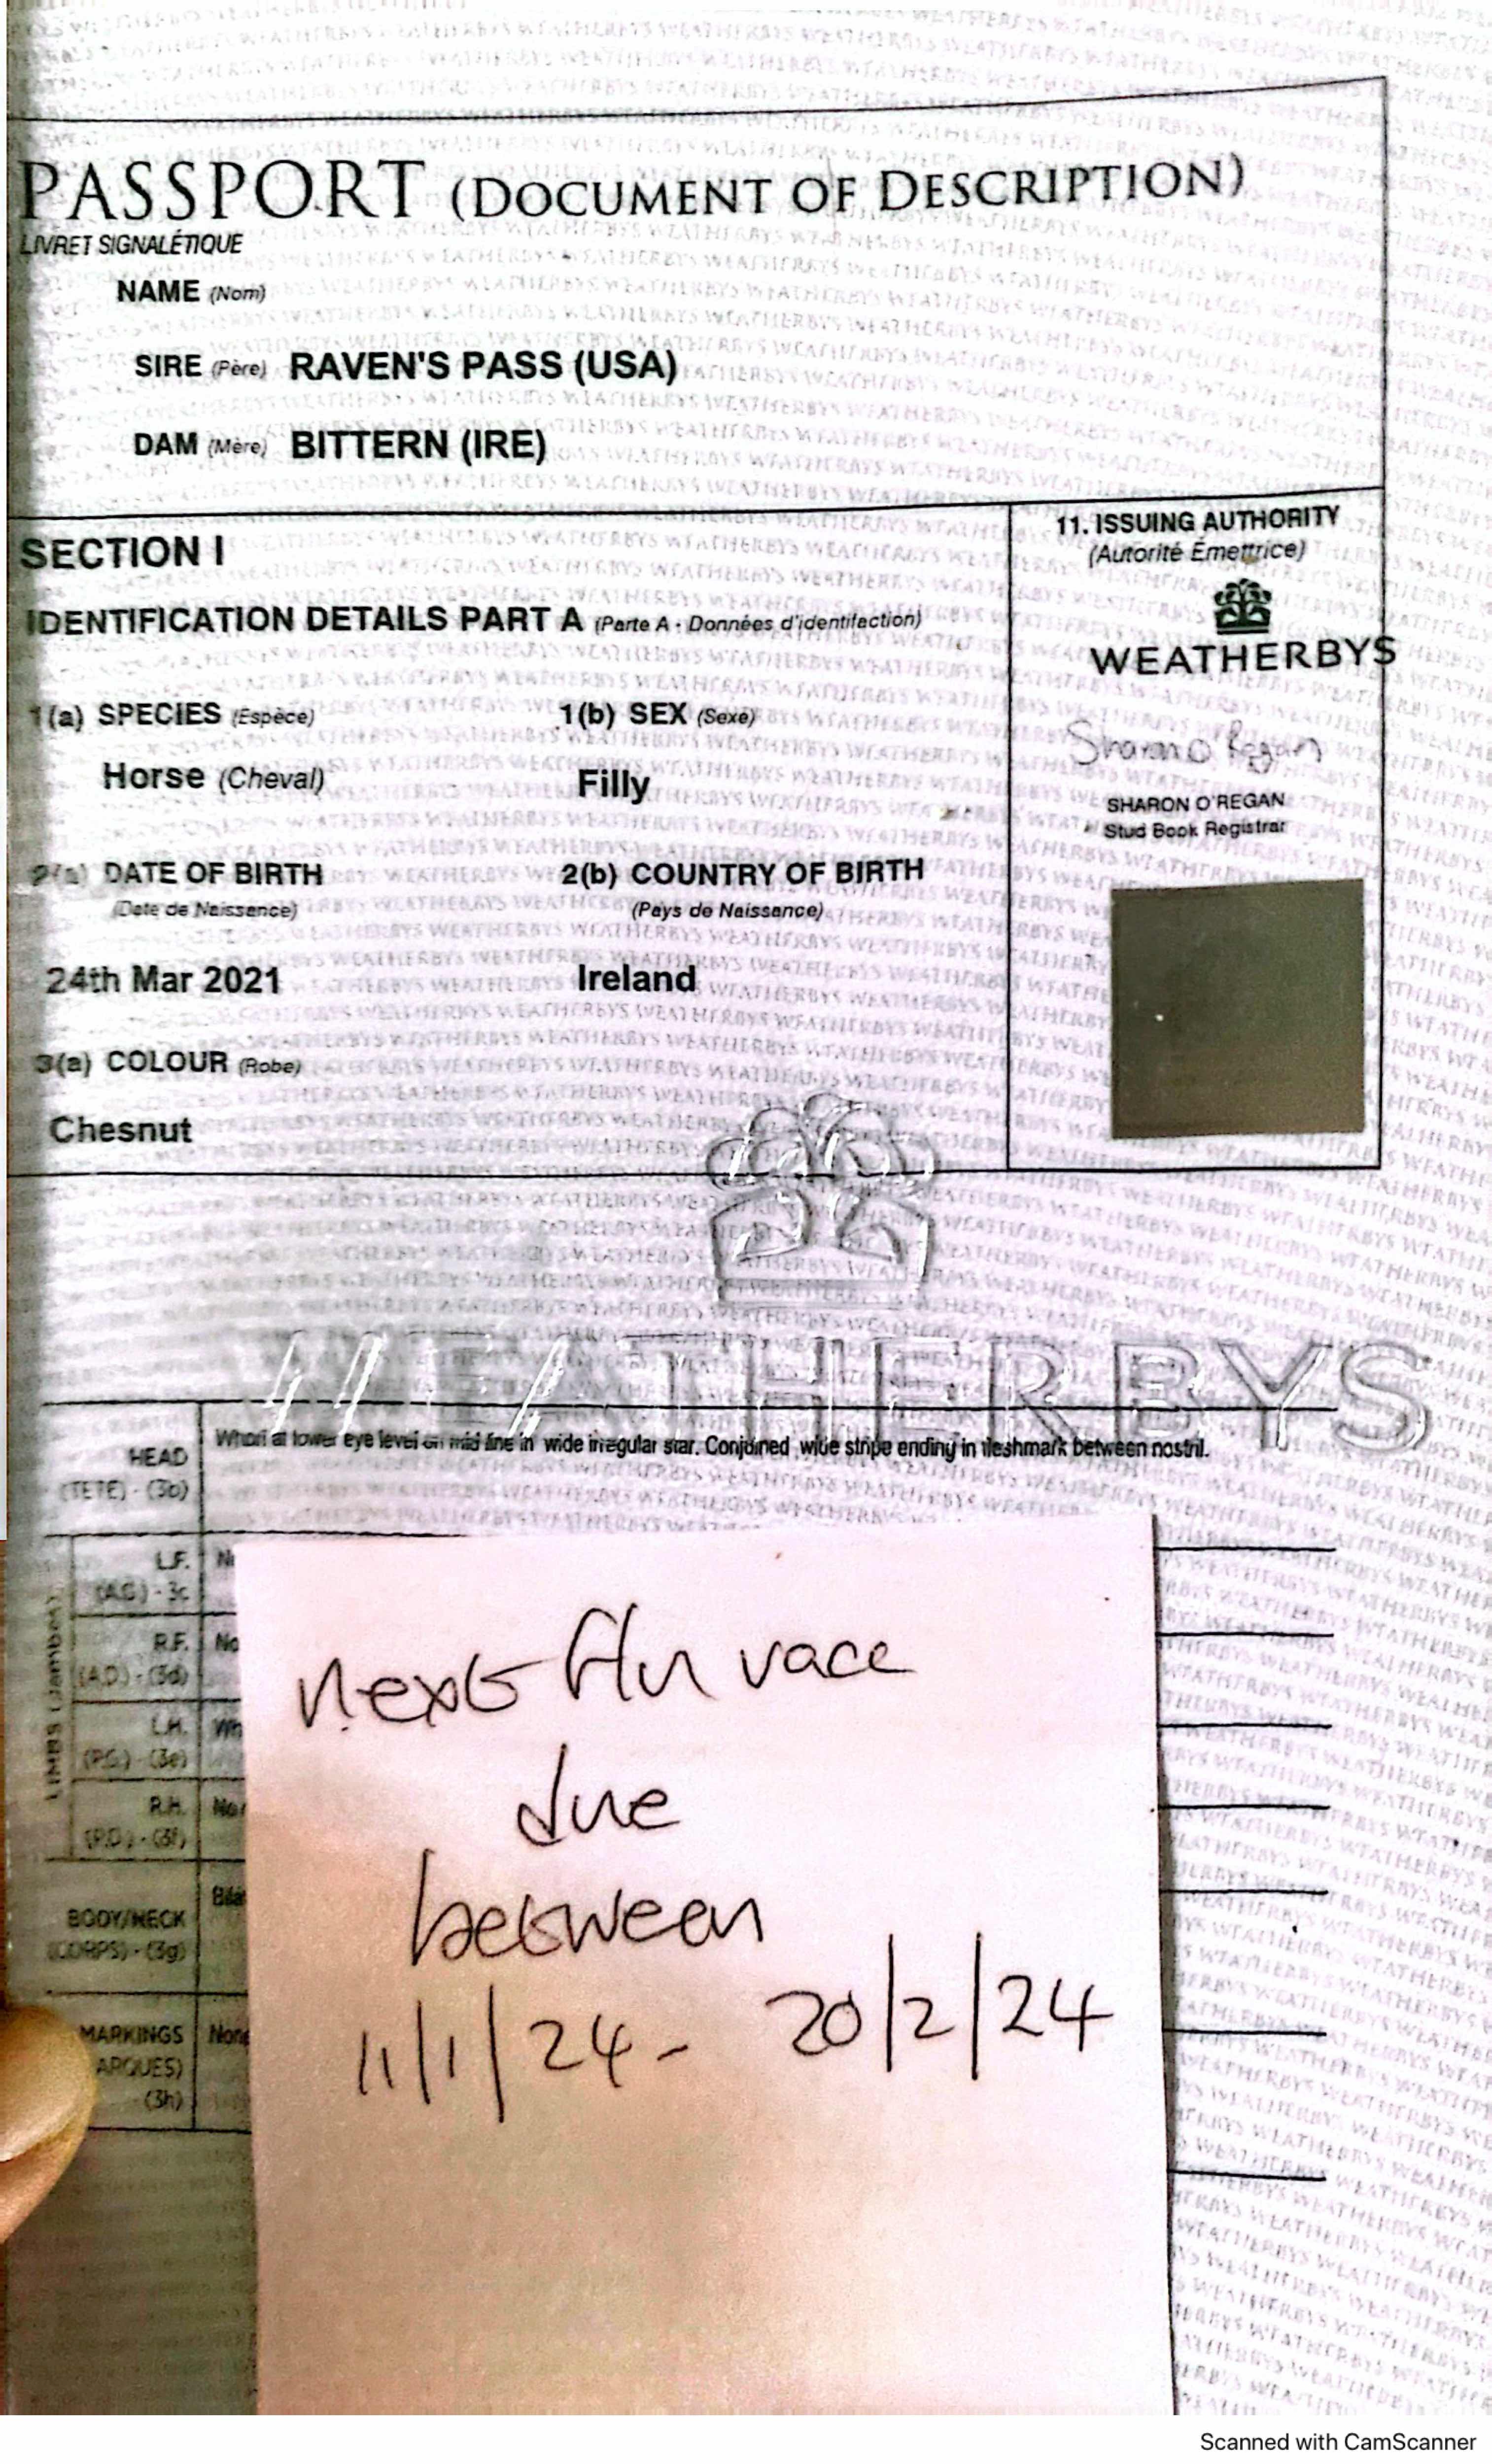 PASSPORT (DOCUMENT OF DESCRIPTION)
LIVRET SIGNALÉTIQUE
NAME (Nom)
SIRE (Père) RAVEN'S PASS (USA)
DAM (Mère) BITTERN (IRE)
SECTION I
IDENTIFICATION DETAILS PART A (Parte A - Données d'identifaction)
1(a) SPECIES (Espèce)
1(b) SEX (Sexe)
Horse (Cheval)
Filly
2(a) DATE OF BIRTH
(Date de Naissance)
2(b) COUNTRY OF BIRTH
(Pays de Naissance)
24th Mar 2021
Ireland
3(a) COLOUR (Robe)
Chesnut
11. ISSUING AUTHORITY
(Autorité Émettrice)
WEATHERBYS
Sharon O Regan
SHARON O'REGAN
Stud Book Registrar
WEATHERBYS
HEAD
(TETE) - (3b)
Whorl at lower eye level on mid line in wide irregular star. Conjoined wide stripe ending in fleshmark between nostril.
LIMBS (Jambes)
L.F.
(A.G.) - 3c
R.F. No
(A.D.) - (3d)
L.H. Wh
(P.G.) - (3e)
R.H.
(P.D.) - (3f)
BODY/NECK
(CORPS) - (3g)
MARKINGS None
ARQUES)
(3h)
next flu vacc
due
between
11/1/24 - 20/2/24
Scanned with CamScanner